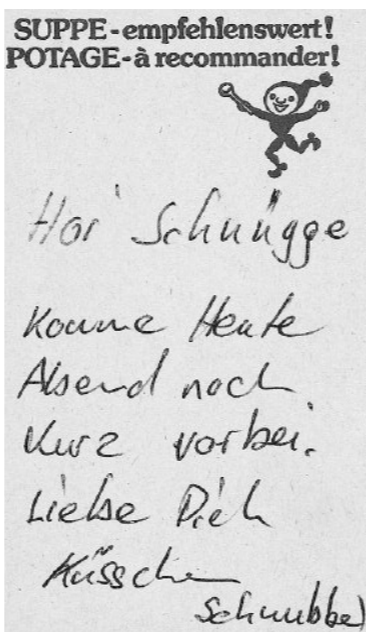 SUPPE-empfehlenswert!
POTAGE-à recommander!
Hoi Schnügge
Komme Heute
Abend noch
Kurz vorbei.
Liebe Dich
Küsschen
Schnubbel